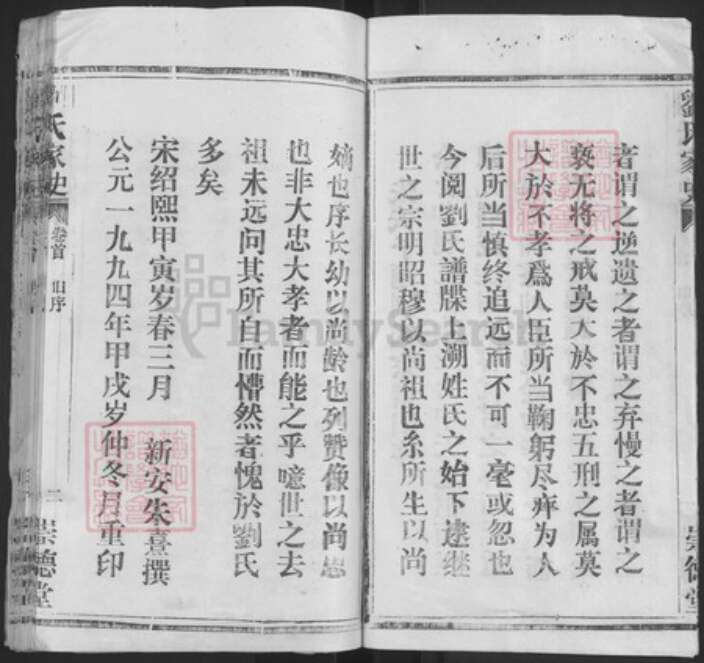 劉氏家史
者谓之逆遗之者谓之弃慢之者谓之
亵无将之戒莫大於不忠五刑之属莫
大於不孝爲人臣所当鞠躬尽瘁为人
后所当慎终追远而不可一毫或忽也
今阅劉氏譜牒上溯姓氏之始下逮继
世之宗明昭穆以尚祖也系所生以尚
崇德堂
嫡也序长幼以尚龄也列赞像以尚
也非大忠大孝者而能之乎噫世之去
祖未远问其所自而懵然者愧於劉氏
多矣
宋绍熙甲寅岁春三月 新安朱熹撰
公元一九九四年甲戌岁仲冬月重印
氏家史 卷首 旧序 二 崇德堂
FamilySearch